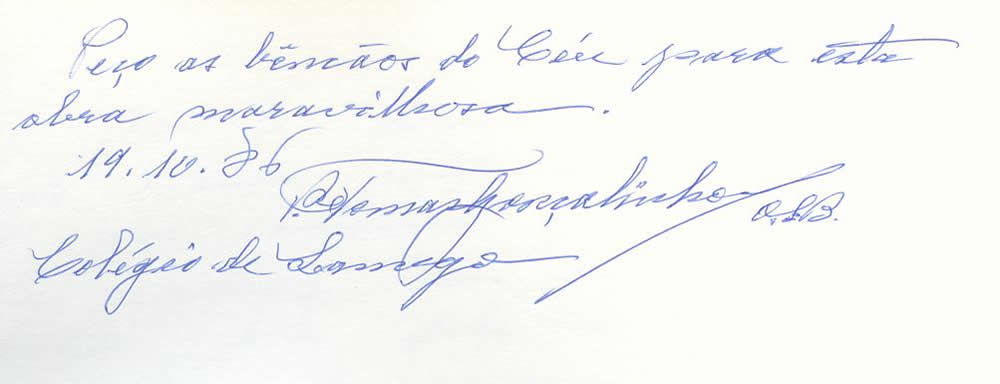 Peço as bênçãos do Céu para esta
obra maravilhosa.
19.10.86
P.e Tomas Gonçalinho O.S.B.
Colégio de Lamego